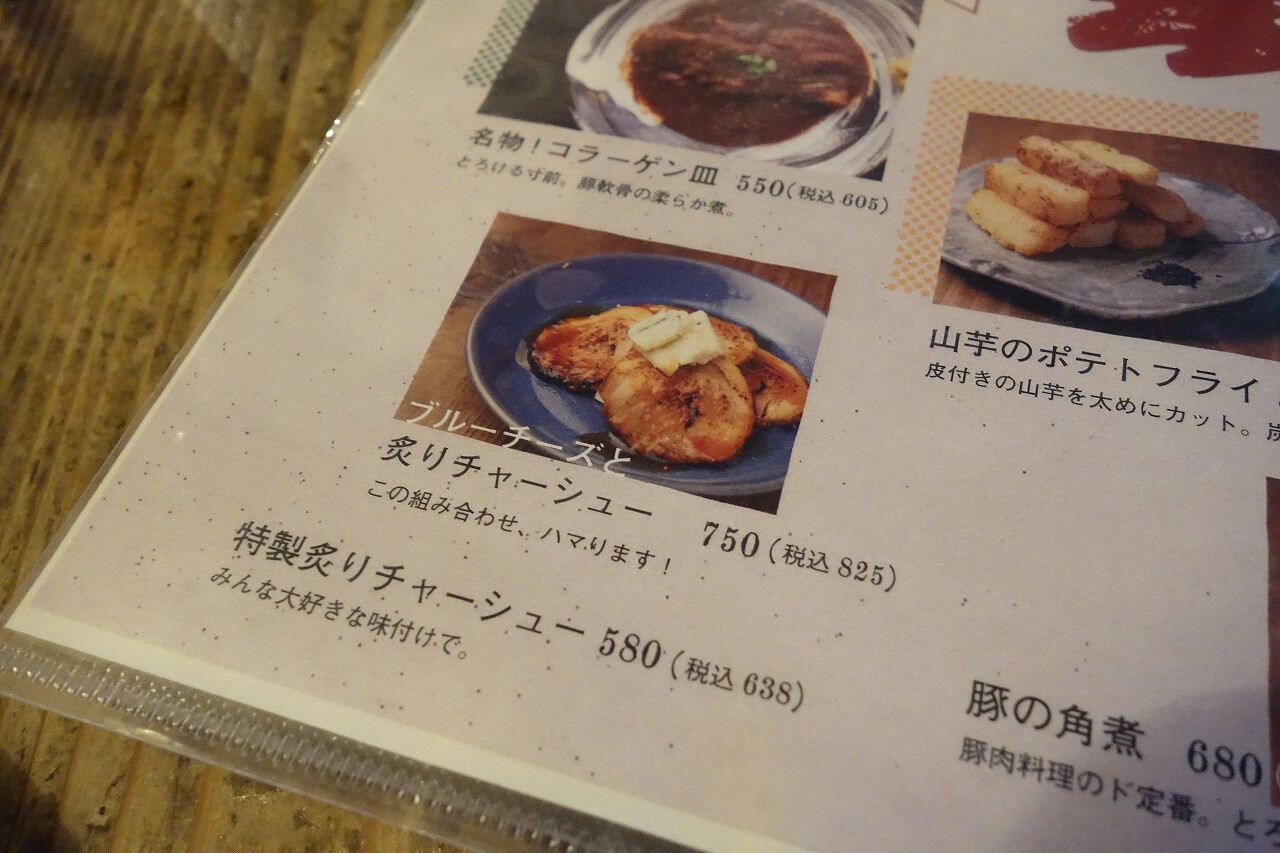 名物！コラーゲン皿 550（税込 605）
とろける寸前。豚軟骨の柔らか煮。
ブルーチーズと
炙りチャーシュー 750（税込 825）
この組み合わせ、ハマります！
特製炙りチャーシュー 580（税込 638）
みんな大好きな味付けで。
山芋のポテトフライ
皮付きの山芋を太めにカット。
豚の角煮 680
豚肉料理のド定番。と